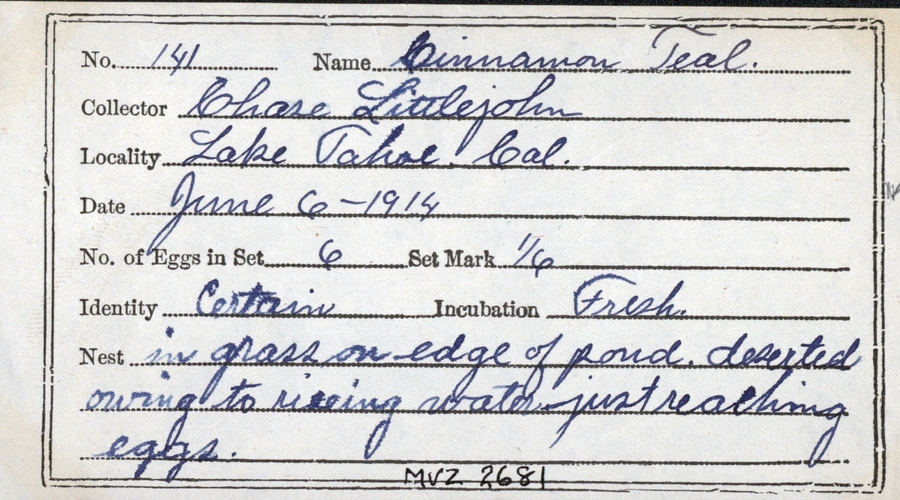 No. 141 Name Cinnamon Teal.
Collector Chase Littlejohn
Locality Lake Tahoe. Cal.
Date June 6-1914
No. of Eggs in Set 6 Set Mark 1/6
Identity Certain Incubation Fresh.
Nest in grass on edge of pond. deserted
owing to riseing water just reaching
eggs.
MVZ 2681